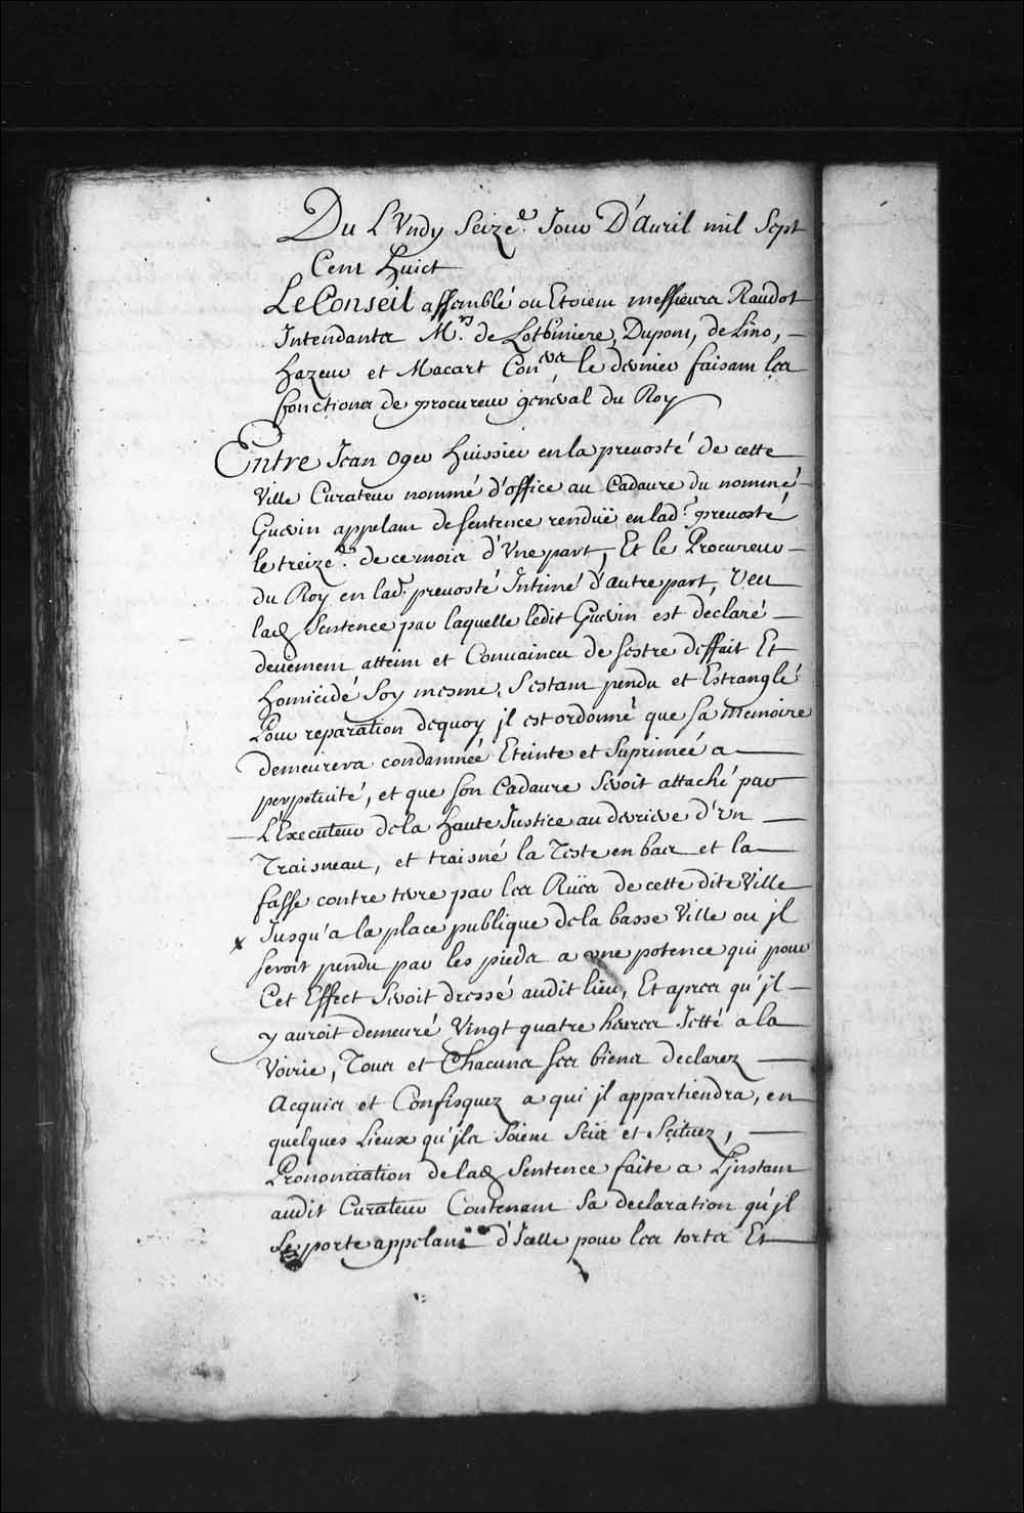 Du Lundy Seize.e Jour D'Auril mil Sept
Cent huict
Le Conseil assemblé ou Etoient messieurs Raudot
Intendants M.rs de Lotbiniere, Dupont, de Lino,
hazeur et Macart Con.ers le dernier faisant les
fonctions de procureur général du Roy
Entre Jean Oger huissier en la preuosté de cette
Ville Curateur nommé d'office au Cadaure du nommé
Guerin appelant de sentence renduë en lad.e preuosté
le treize.e de ce mois d'Vne part, Et le Procureur
du Roy en lad.e preuosté Intimé d'autre part, Veu
lad. Sentence par laquelle ledit Guerin est declaré
deuement atteint et Conuaincu de sestre deffait Et
homicidé Soy mesme, S'estant pendu et Estranglé
Pour reparation dequoy jl est ordonné que sa memoire
demeurera condamnée Eteinte et Supriméé a
perpetuité, et que son Cadaure Seroit attaché par
L'Executeur de la haute Justice au derriere d'Vn
Traisneau, et traisné la Teste en bas et la
fasse contre terre par les Rües de cette dite Ville
Jusqu'a la place publique de la basse Ville ou jl
seroit pendu par les pieds a vne potence qui pour
Cet Effect Seroit dressé audit lieu, Et apres qu'jl
y auroit demeuré Vingt quatre heures Jetté a la
Voirie, Tous et Chacuns ses biens declarez
Acquis et Confisquez a qui jl appartiendra, en
quelques Lieux qu'jls Soient Scis et Scituez,
Prononciation de lad. Sentence faite a L'jnstant
audit Curateur Contenant Sa declaration qu'jl
Se porte appelant d'Jcelle pour les torts Et